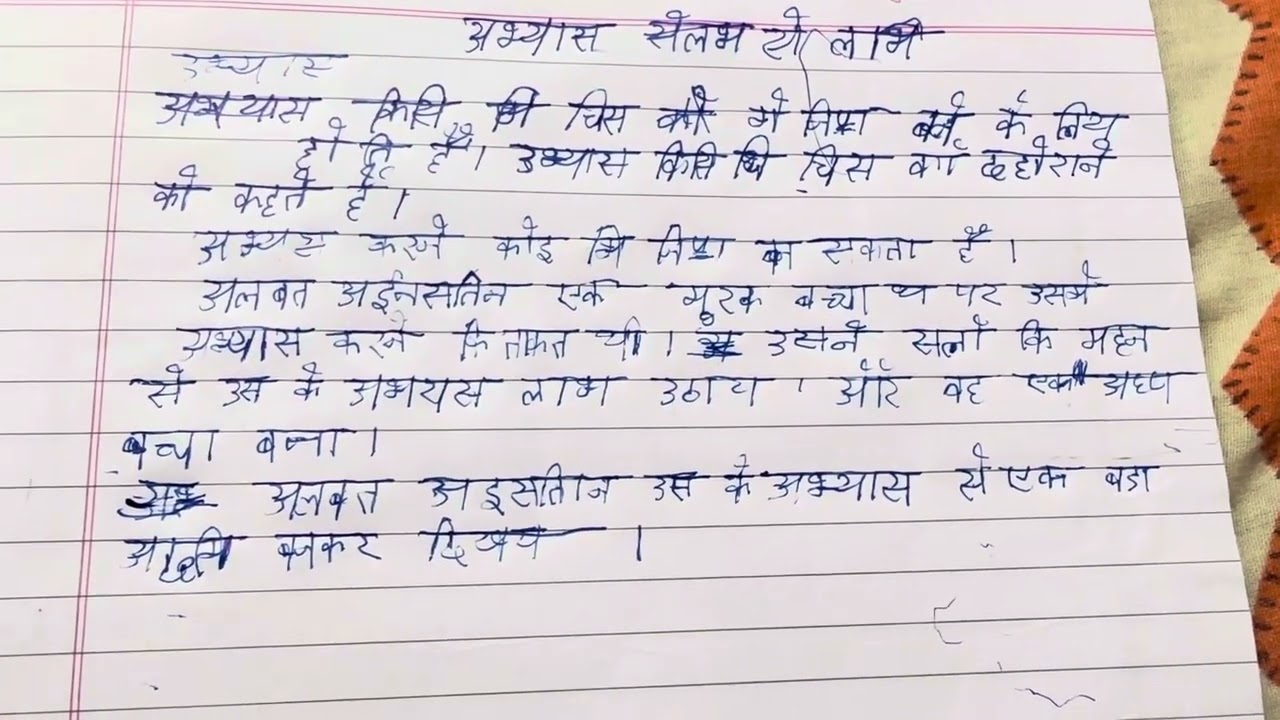 अभ्यास सेलभ हो लाभ
अभ्यास किसि भि चिस को मे निपूा बने के लिय
होति हैं। उभ्यास किसि भि चिस का दहोराने
को कहते है।
अभ्यस करने कोइ भि निपूा बन सकता हैं।
अलबत अईनसतिन एक मूरक बच्चा थ पर उसमे
अभ्यास करने कि ताकत थी। उसने सलों कि महन
से उस के अभयस लाभ उठाय। और वह एक अछ
बच्चा बना।
अलबत अइसतिन उस के अभ्यास से एक बडा
आदमि बनकर दिखय।